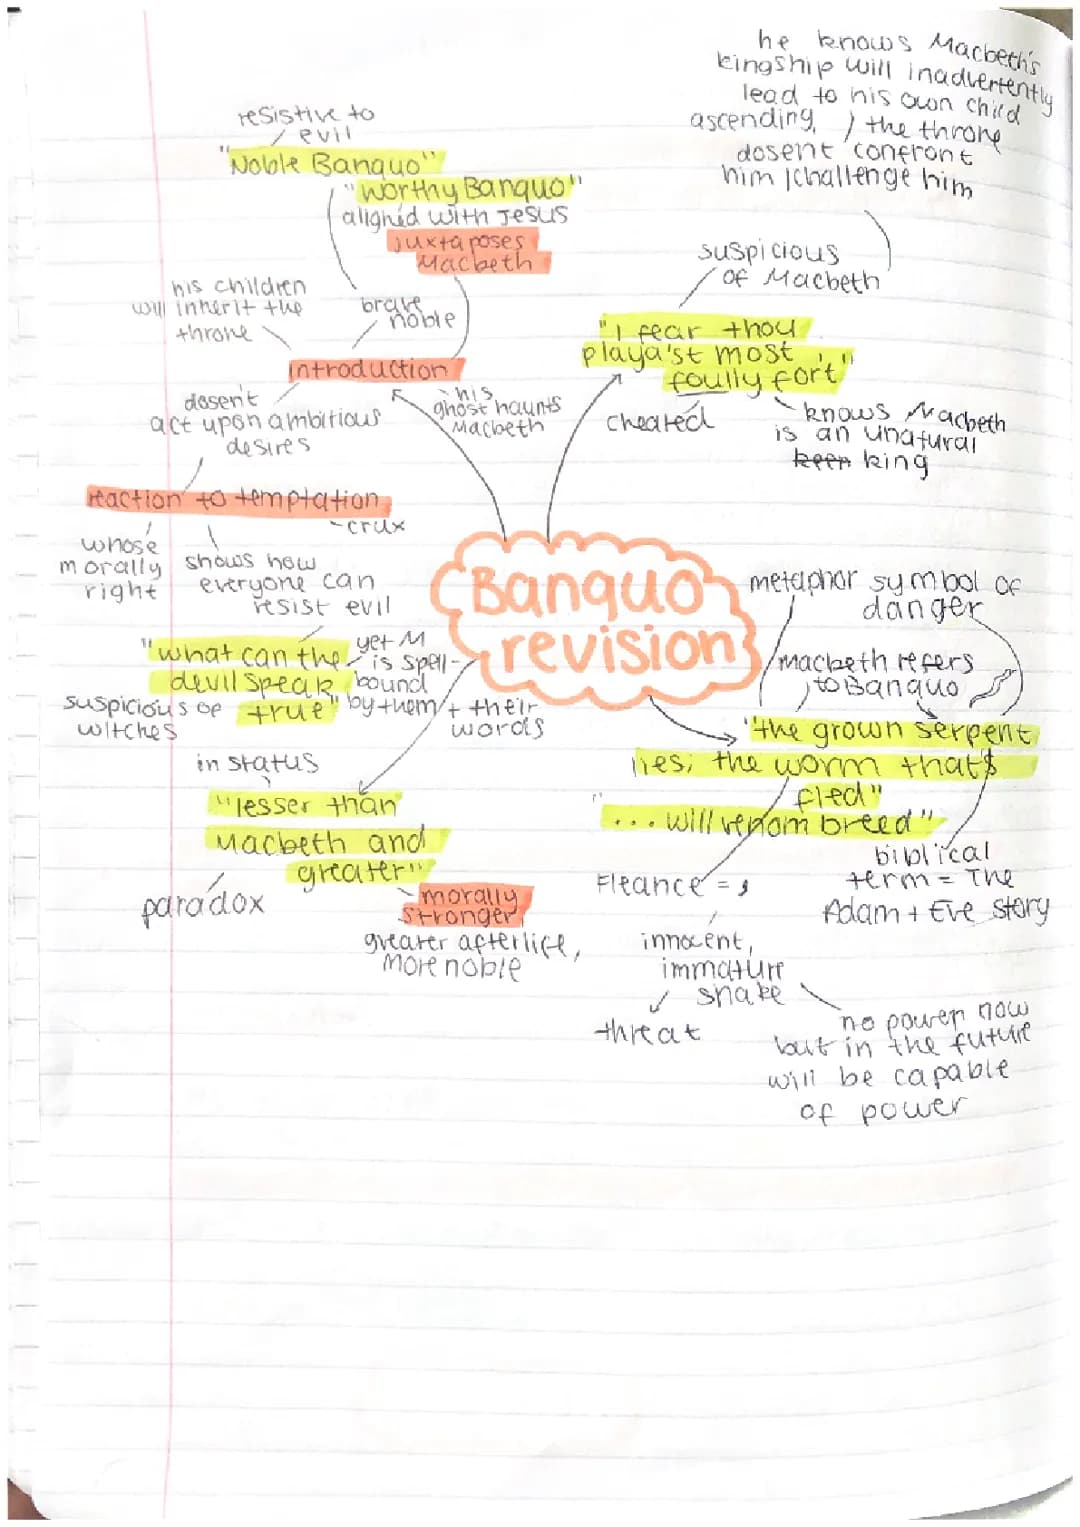 he knows Macbeth's
kingship will inadvertently
lead to his own child
ascending, / the throne
dosent confront
him / challenge him
resistive to
evil
"Noble Banquo"
"worthy Banquo"
aligned with Jesus
juxtaposes
Macbeth
his children
will inherit the
throne
brave
noble
introduction
his
ghost haunts
Macbeth
dosen't
act upon ambitious
desires
reaction to temptation
- crux
whose
morally
right
shows how
everyone can
resist evil
"what can the
devil speak
true"
yet M
is spell-
bound
by them + their
words
suspicious of
witches
in status
"lesser than
Macbeth and
greater"
paradox
morally
stronger,
greater afterlife,
more noble
suspicious
of Macbeth
"I fear thou
playa'st most
foully fort'"
cheated
knows Macbeth
is an unatural
keen king
Banquo
revision
metaphor symbol of
danger
Macbeth refers
to Banquo
"the grown serpent
lies; the worm that's
fled"
"... will venom breed"
biblical
term = The
Adam + Eve story
Fleance = s
innocent,
immature
snake
threat
no power now
but in the future
will be capable
of power